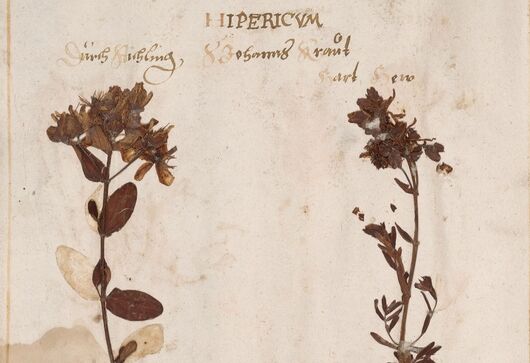 HIPERICVM
Durch Fächling, S Johanns Kraůt
Hart Hew